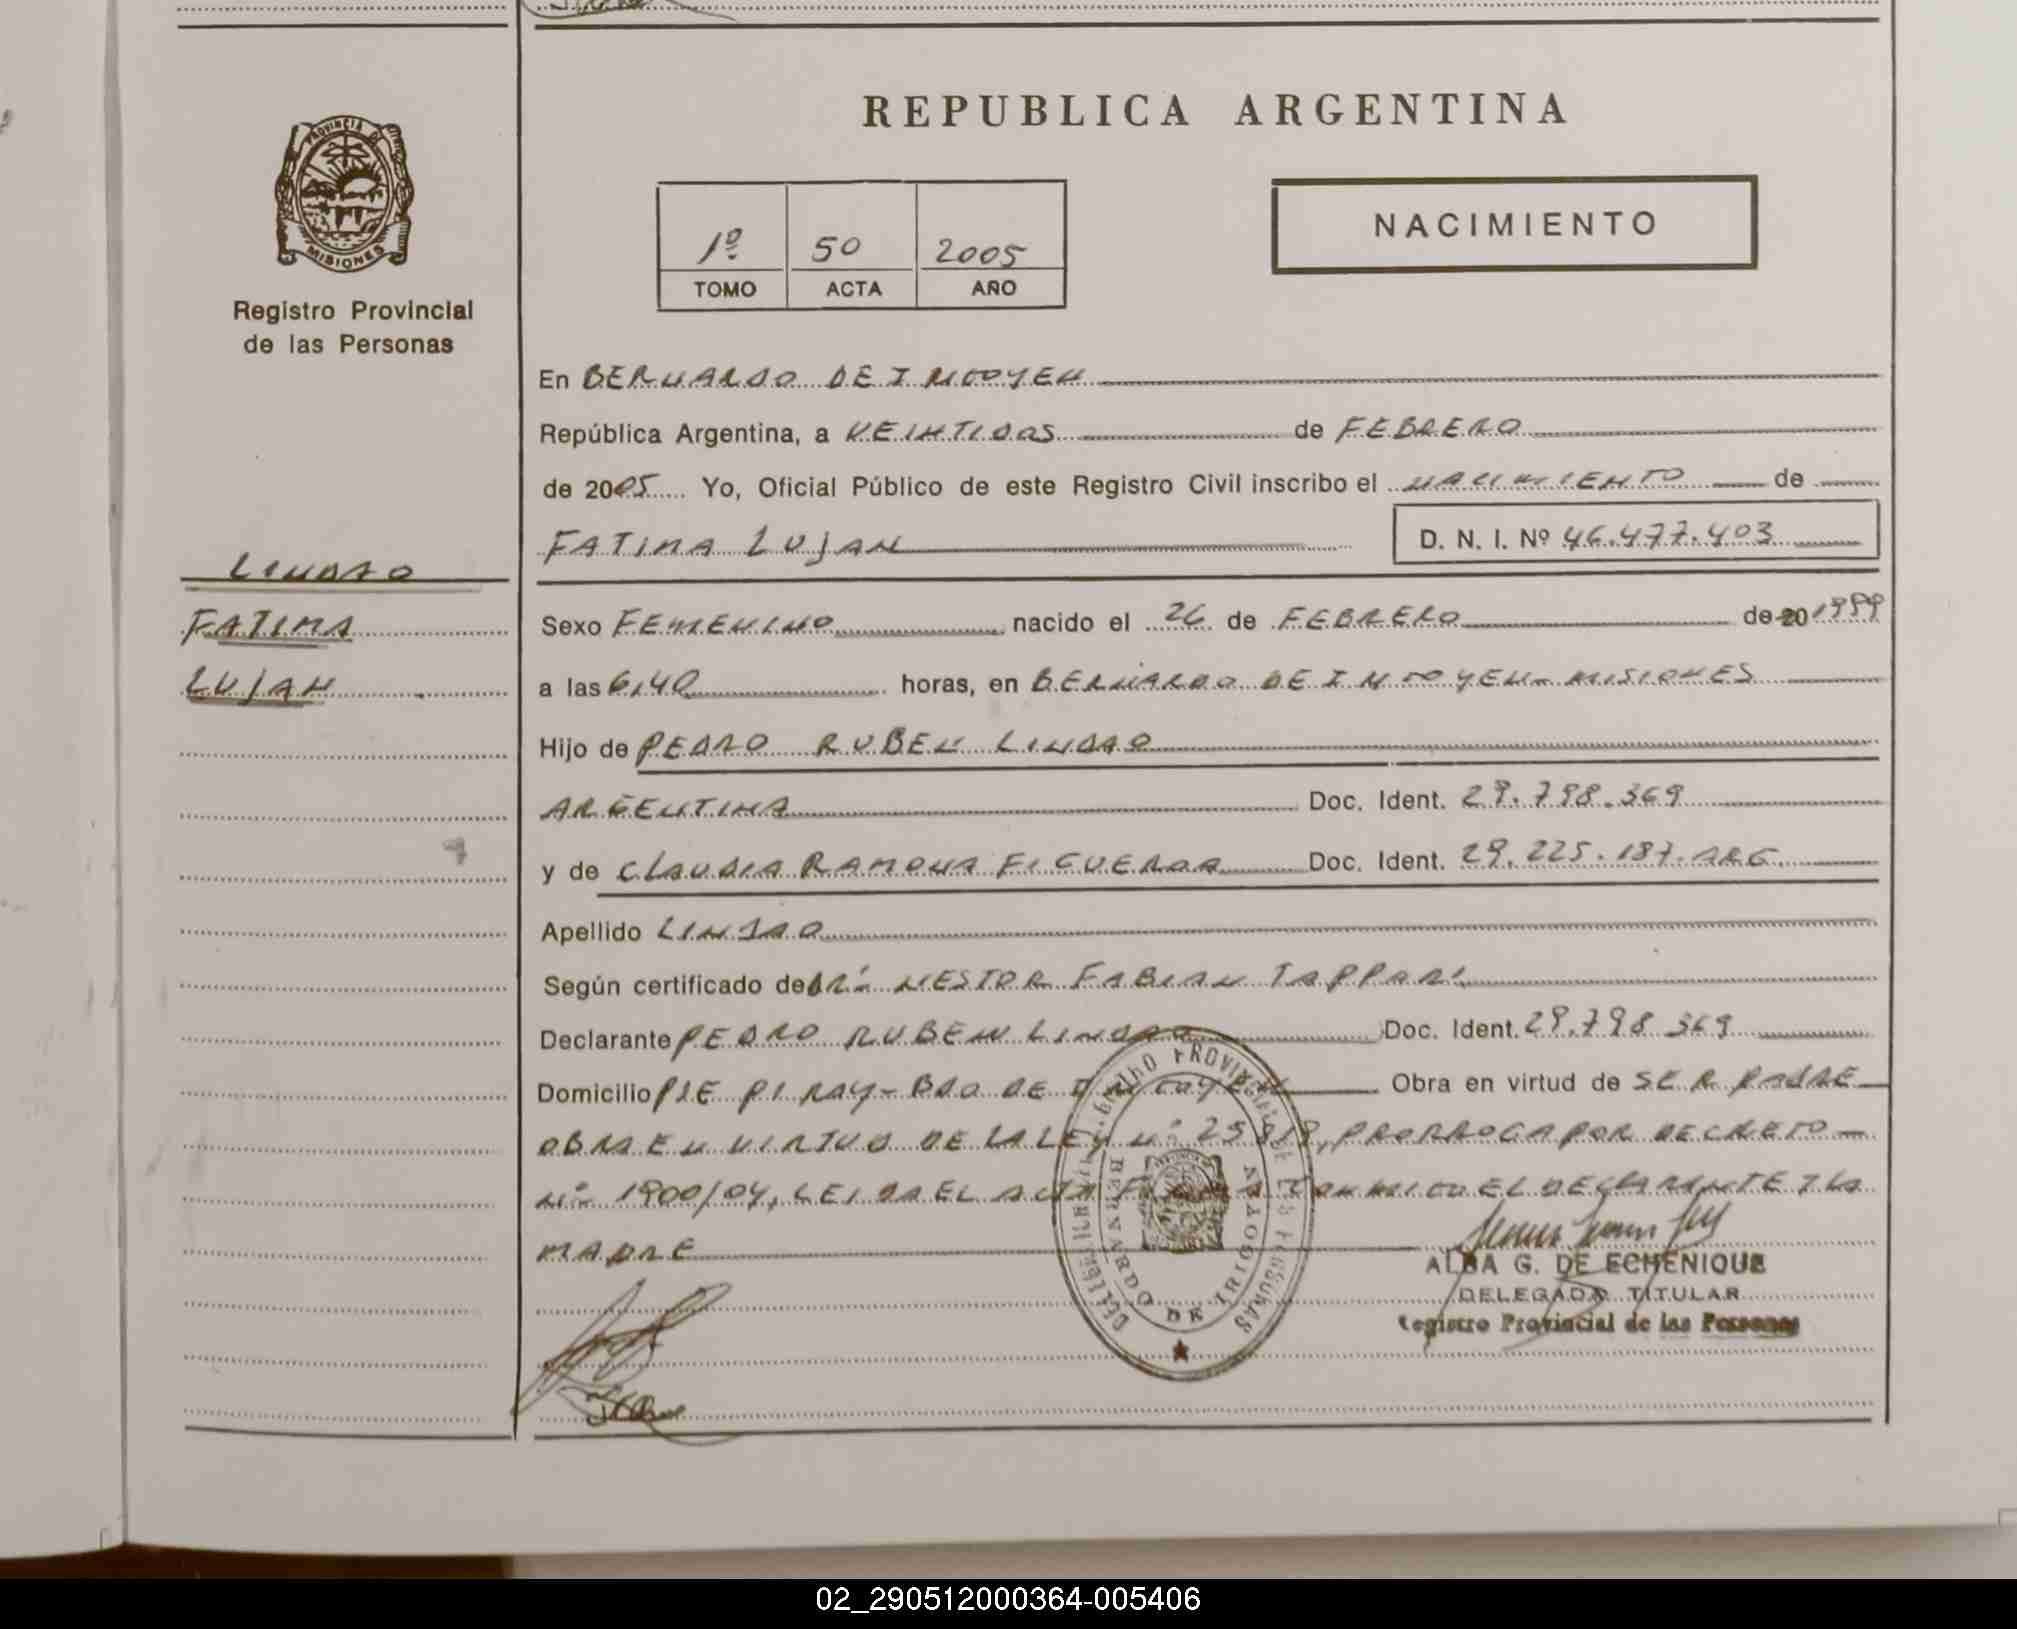 PROVINCIA DE
MISIONES
Registro Provincial
de las Personas
REPUBLICA ARGENTINA
1º 50 2005
TOMO ACTA AÑO
NACIMIENTO
En BERNARDO DE IRIGOYEN
República Argentina, a VEINTIDOS de FEBRERO
de 2005 Yo, Oficial Público de este Registro Civil inscribo el NACIMIENTO de
FATIMA LUJAN D. N. I. Nº 46.477.403
LINDAO
FATIMA
LUJAN
Sexo FEMENINO nacido el 26 de FEBRERO de 20 1999
a las 6,40 horas, en BERNARDO DE IRIGOYEN - MISIONES
Hijo de PEDRO RUBEN LINDAO
ARGENTINA Doc. Ident. 29.798.369
y de CLAUDIA RAMONA FIGUEROA Doc. Ident. 29.225.187. ARG
Apellido LINDAO
Según certificado de DR. NESTOR FABIAN TAPPARI
Declarante PEDRO RUBEN LINDAO Doc. Ident. 29.798 369
Domicilio PTE PIRAY - BDO DE IRIGOYEN Obra en virtud de SER PADRE
OBRA EN VIRTUD DE LA LEY Nº PRORROGA POR DECRETO
Nº 1900/04, LEIDA EL ACTA FIRMA CONMIGO EL DECLARANTE Y LA
MADRE
ALBA G. DE ECHENIQUE
DELEGADA TITULAR
Registro Provincial de las Personas
BERNARDO DE IRIGOYEN
02_290512000364-005406